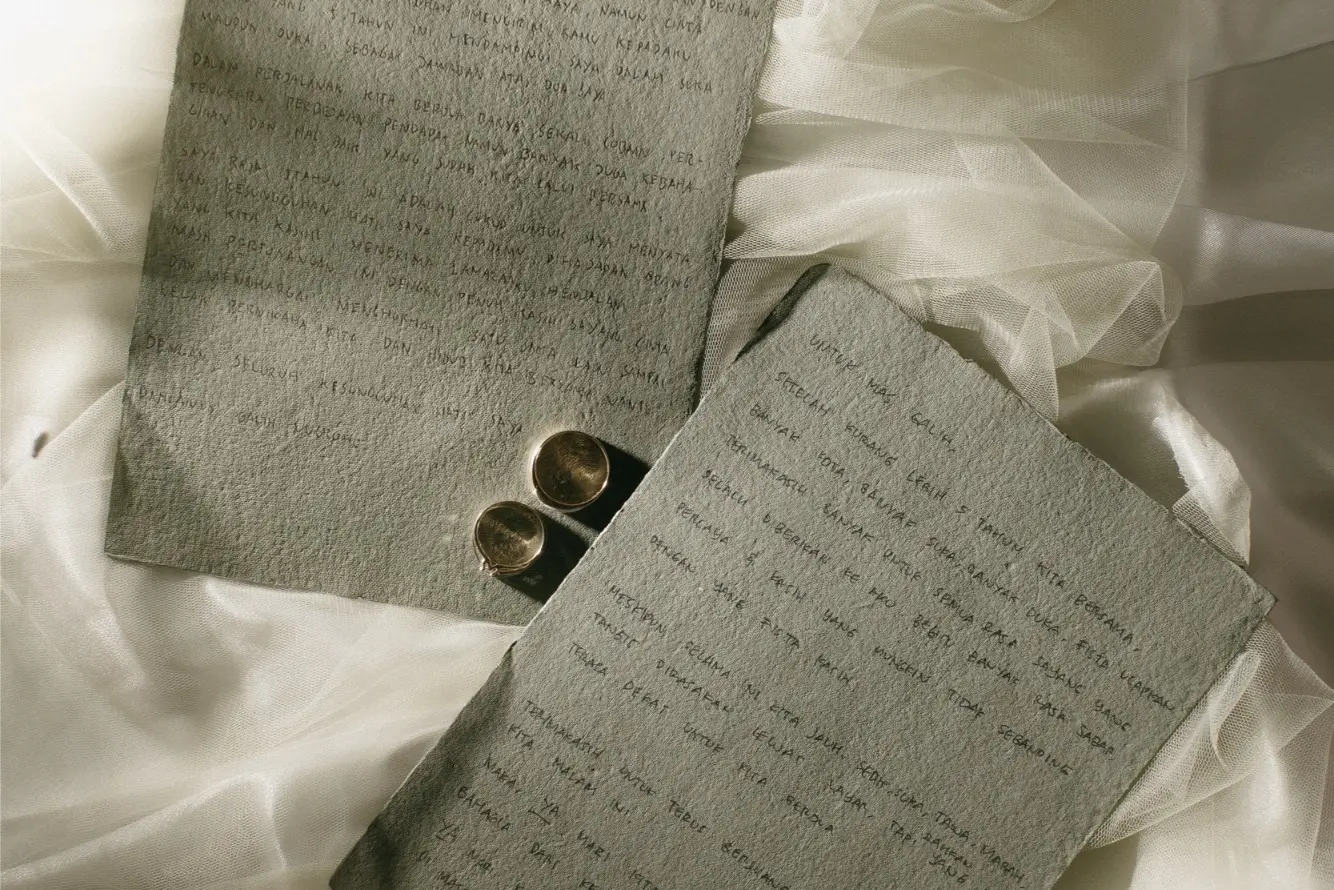 DENGAN
SAYA, NAMUN CINTA
TUHAN MENGIRIM KAMU KEPADAKU
YANG 5 TAHUN INI MENDAMPINGI SAYA DALAM SUKA
MAUPUN DUKA, SEBAGAI JAWABAN ATAS DOA SAYA
DALAM PERJALANAN KITA BERDUA BANYAK SEKALI COBAAN, PER-
TENGKARAN, PERBEDAAN PENDAPAT NAMUN BANYAK JUGA KEBAHA-
GIAN DAN HAL BAIK YANG SUDAH KITA LALUI BERSAMA.
SAYA RASA 5 TAHUN INI ADALAH CUKUP UNTUK SAYA MENYATA
KAN KESUNGGUHAN HATI SAYA KEPADAMU DIHADAPAN ORANG
YANG KITA KASIHI MENERIMA LAMARAN, MENJALANI
MASA PERTUNANGAN INI DENGAN PENUH KASIH SAYANG CINTA
DAN MENGHARGAI MENGHORMATI SATU SAMA LAIN SAMPAI
KELAK PERNIKAHAN KITA DAN HIDUP KITA
DENGAN SELURUH KESUNGGUHAN HATI SAYA
GALIH
UNTUK MAS GALIH,
SETELAH KURANG LEBIH 5 TAHUN KITA BERSAMA,
BANYAK KOTA, BANYAK SUKA, BANYAK DUKA. FISTA UCAPKAN
TERIMAKASIH BANYAK UNTUK SEMUA RASA SAYANG YANG
SELALU DIBERIKAN KE AKU BEGITU BANYAK RASA SABAR
PERCAYA & KASIH YANG MUNGKIN TIDAK SEBANDING
DENGAN YANG FISTA KASIH.
MESKIPUN SELAMA INI KITA JAUH, SEDIH, SUKA, TAWA, MARAH,
TANGIS DIRASAKAN LEWAT LAYAR, TAPI BAHKAN YANG
TERASA DEKAT UNTUK KITA BERDUA
TERIMAKASIH UNTUK TERUS BERJUANG
KITA MALAM INI
YA MARI KITA
BAHAGIA DARI
YA